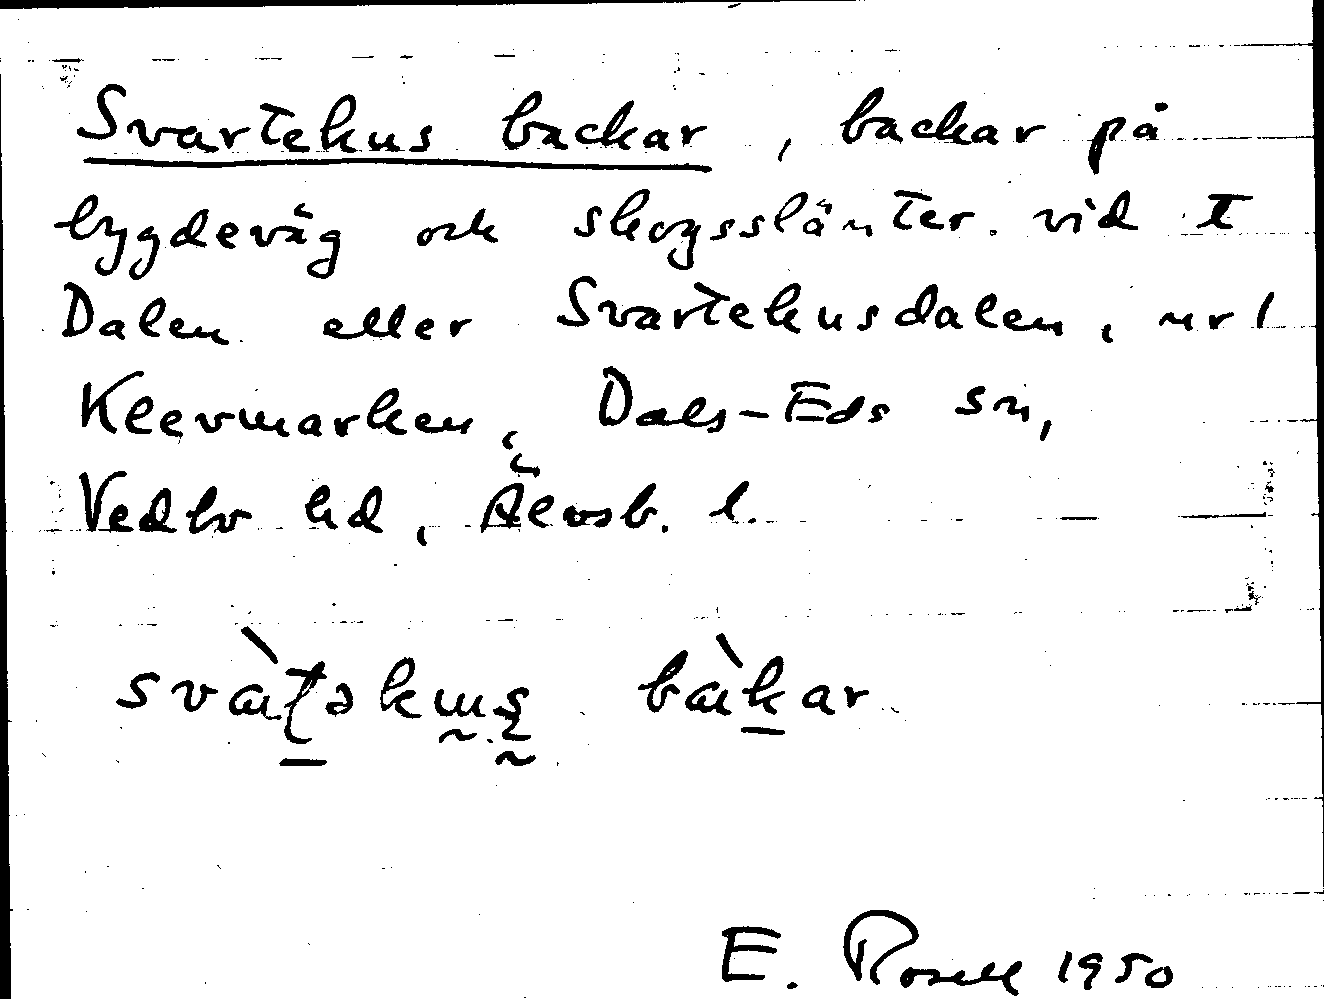 Svartekus backar, backar på
bygdeväg och skogsslänter vid t
Dalen eller Svartekusdalen, nr 1
Klevmarken, Dals-Eds sn,
Vedbo hd, Älvsb. l.
bàkar
E. Rosell 1950